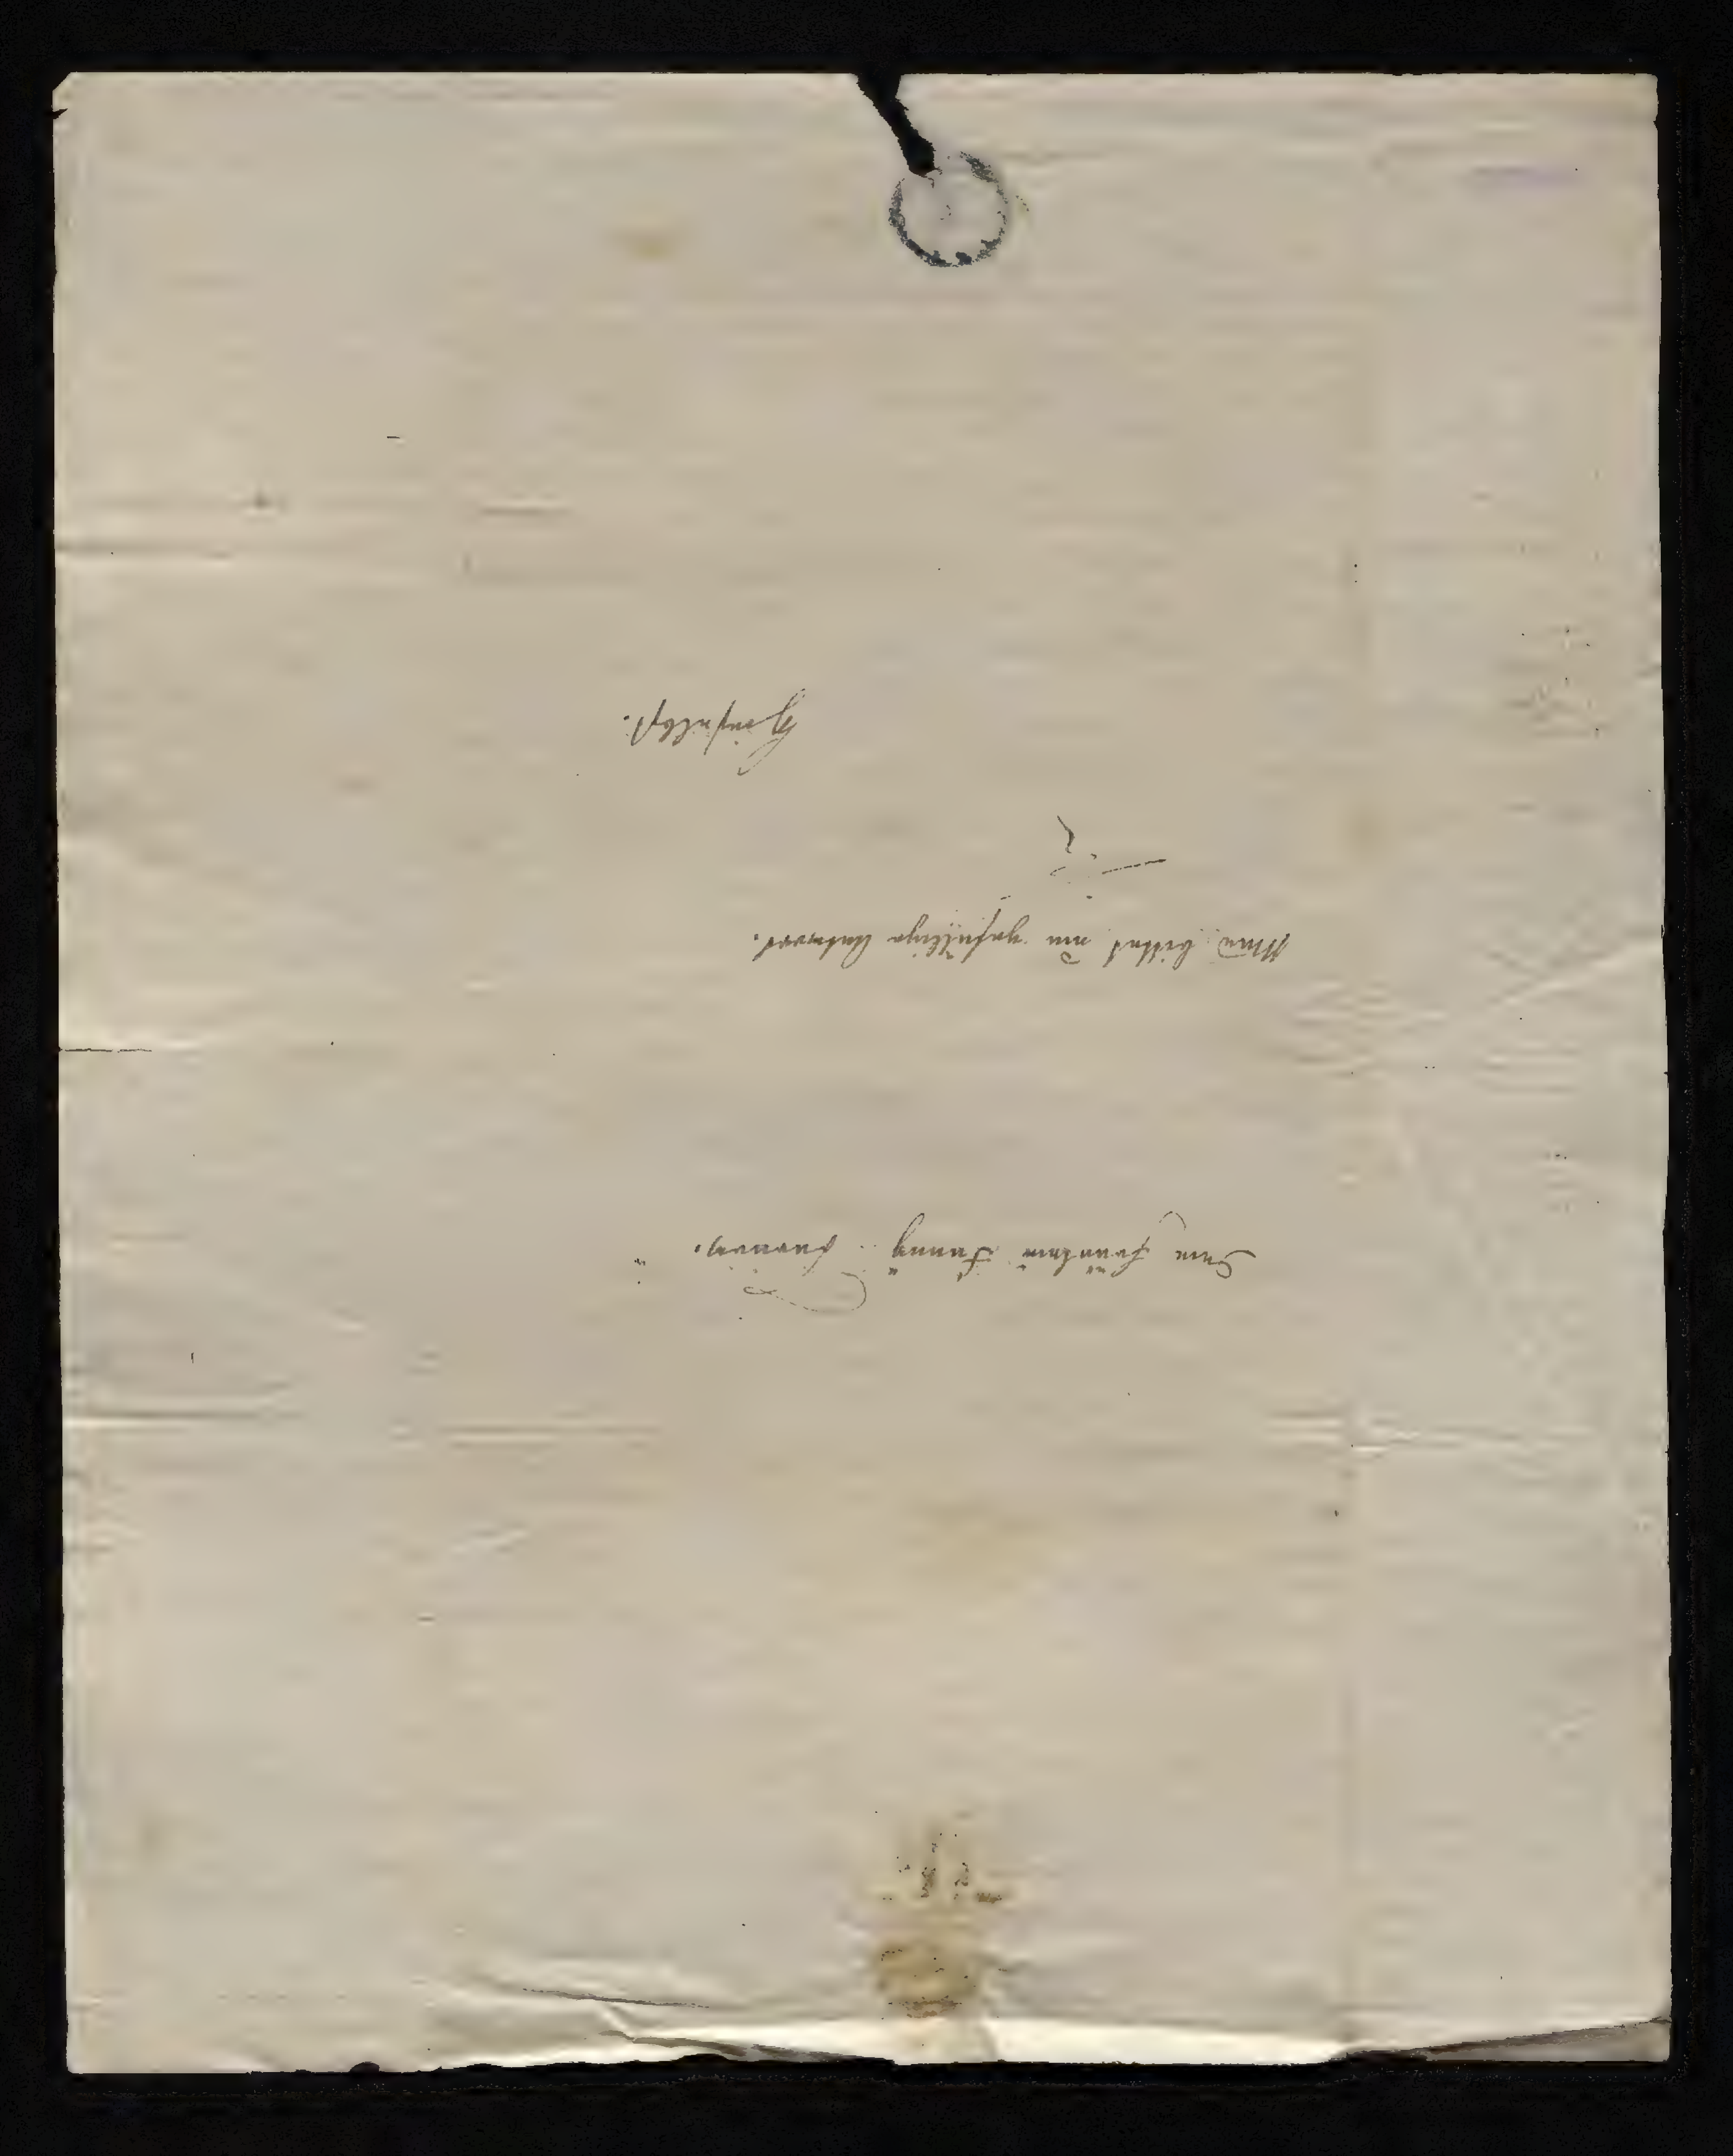 Dem Fräulein Fanny
Man bittet um gefällige Antwort.
Hieselbst.